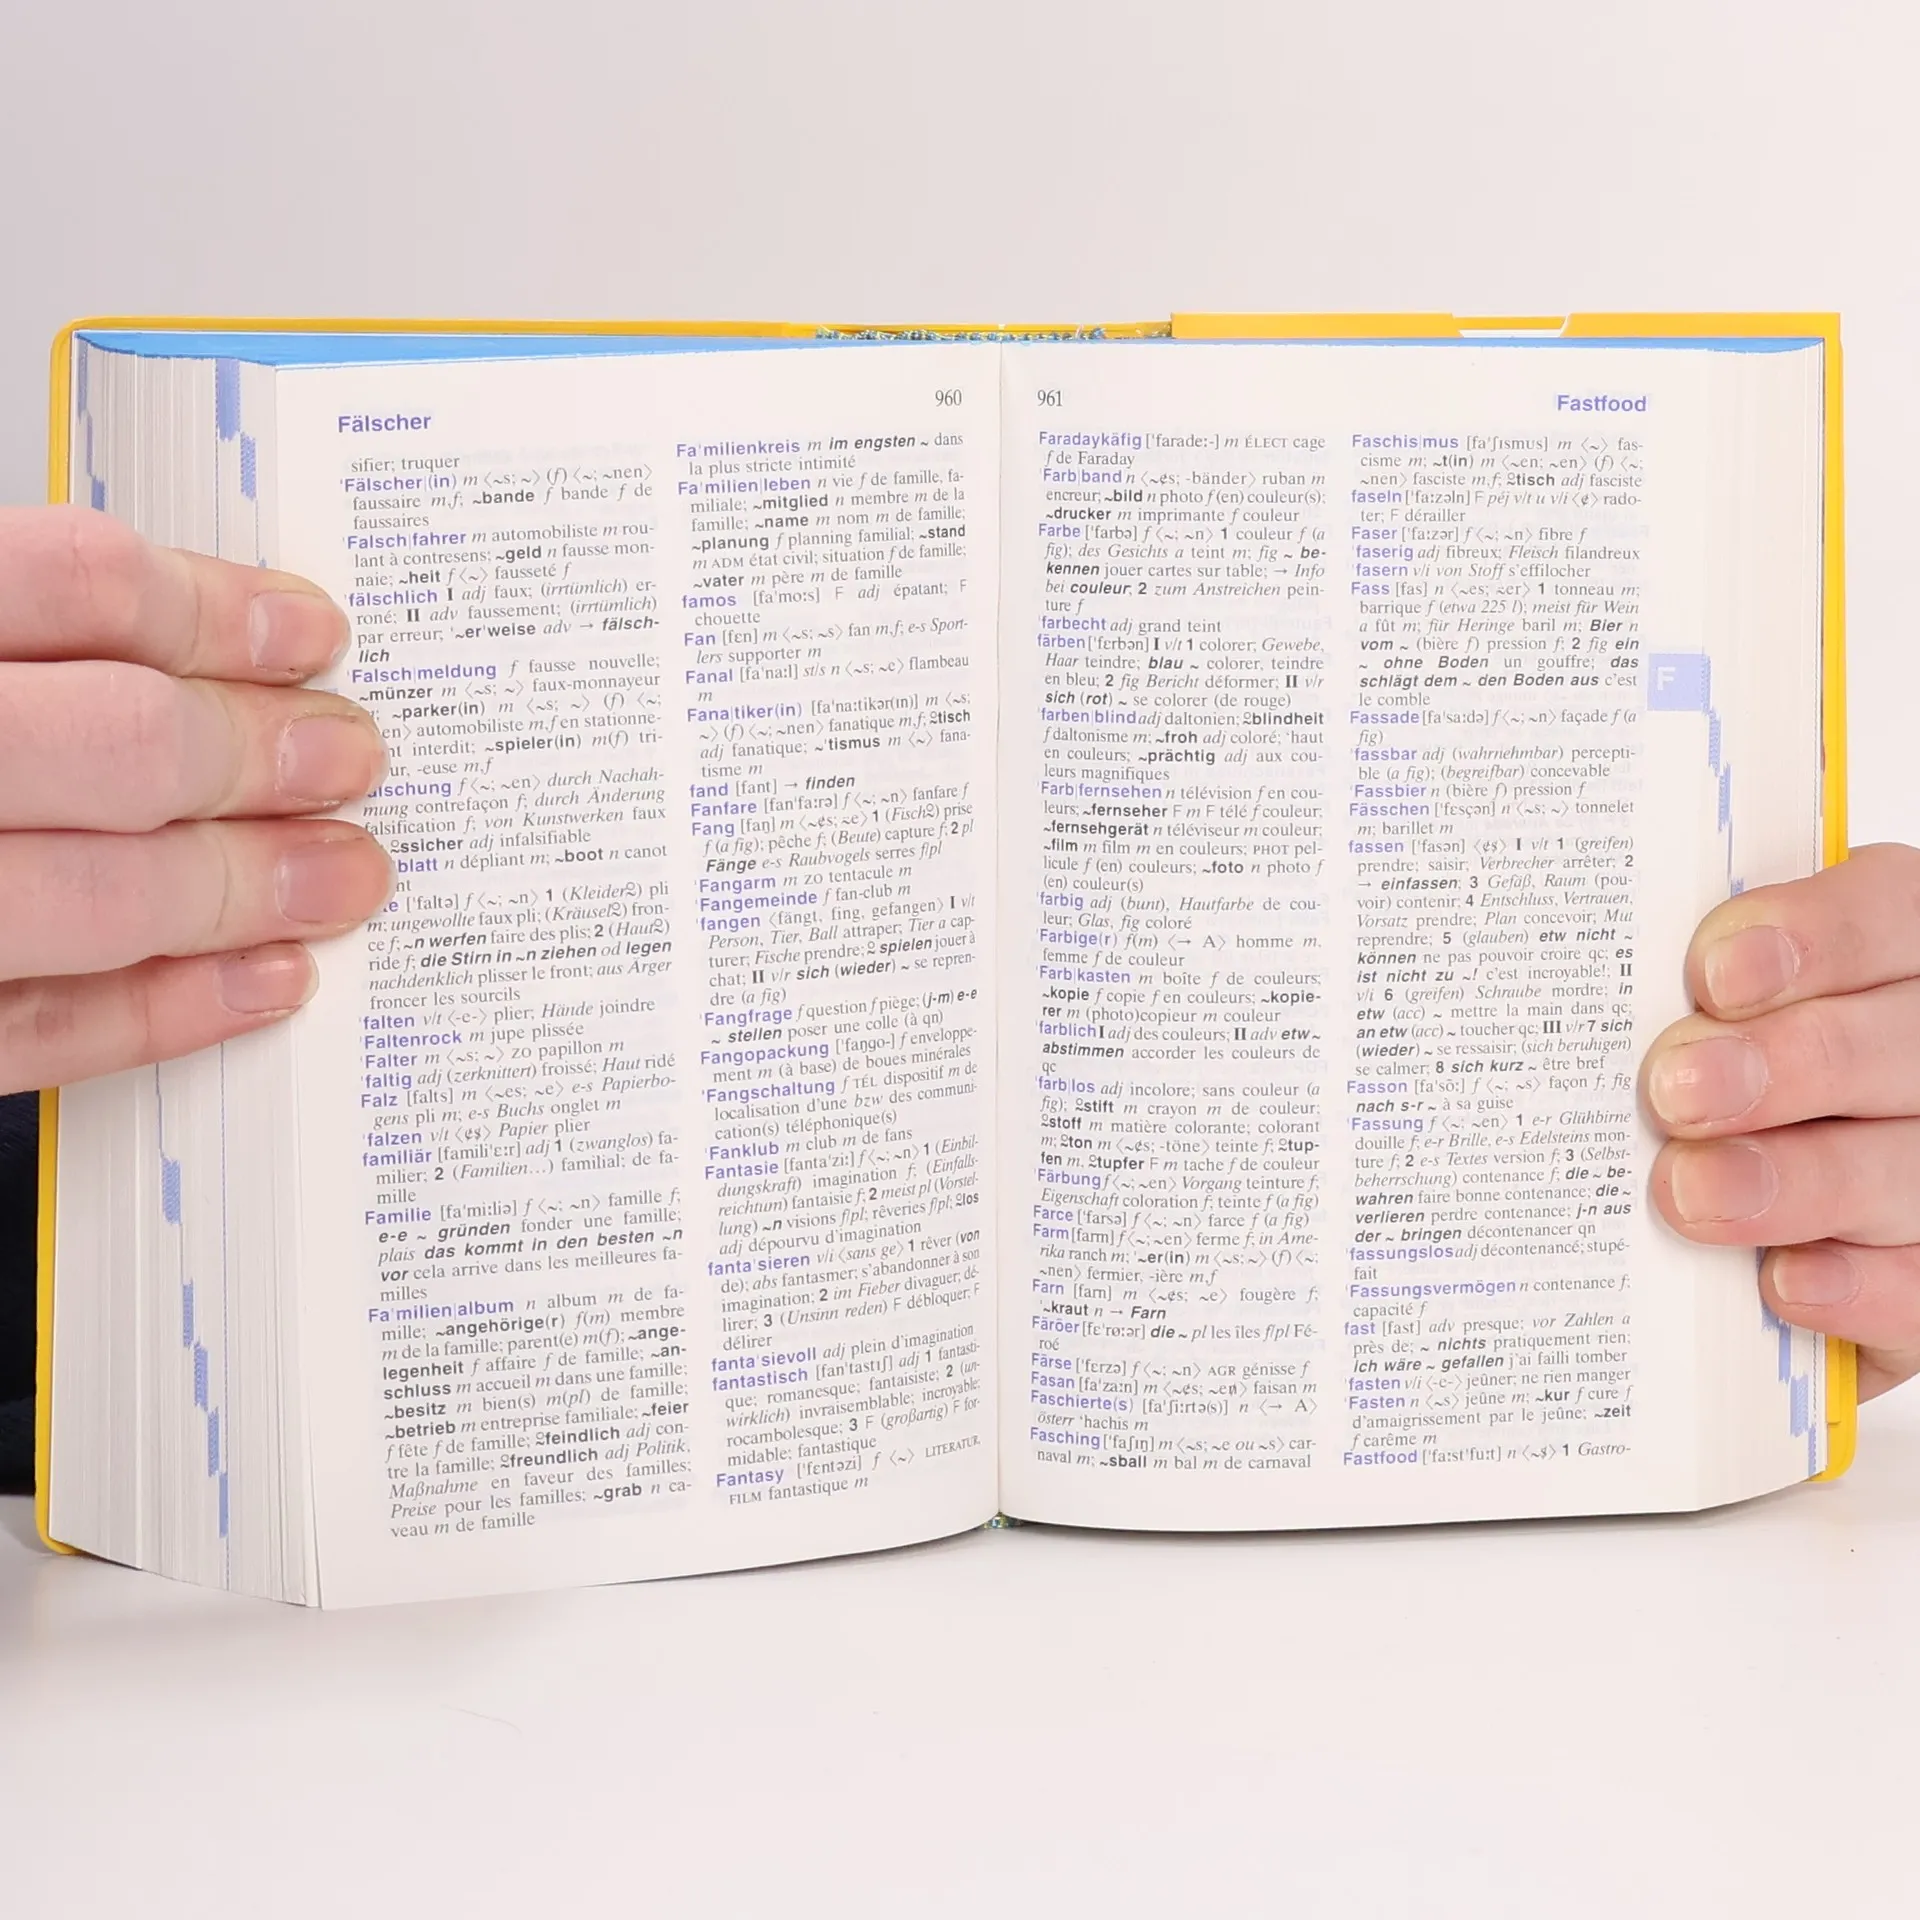 960
Fälscher
sifier; truquer
'Fälscher|(in) m ⟨~s; ~⟩ (f) ⟨~; ~nen⟩
faussaire m,f; ~bande f bande f de
faussaires
'Falsch|fahrer m automobiliste m rou-
lant à contresens; ~geld n fausse mon-
naie; ~heit f ⟨~⟩ fausseté f
'fälschlich I adj faux; (irrtümlich) er-
roné; II adv faussement; (irrtümlich)
par erreur; '~er'weise adv → fälsch-
lich
'Falsch|meldung f fausse nouvelle;
~münzer m ⟨~s; ~⟩ faux-monnayeur
~parker(in) m ⟨~s; ~⟩ (f) ⟨~;
automobiliste m,f en stationne-
interdit; ~spieler(in) m(f) tri-
-euse m,f
f ⟨~; ~en⟩ durch Nachah-
mung contrefaçon f; durch Änderung
falsification f; von Kunstwerken faux
adj infalsifiable
blatt n dépliant m; ~boot n canot
['faltə] f ⟨~; ~n⟩ 1 (Kleider♀) pli
m; ungewollte faux pli; (Kräusel♀) fron-
ce f; ~n werfen faire des plis; 2 (Haut♀)
ride f; die Stirn in ~n ziehen od legen
nachdenklich plisser le front; aus Ärger
froncer les sourcils
'falten v/t ⟨-e-⟩ plier; Hände joindre
'Faltenrock m jupe plissée
'Falter m ⟨~s; ~⟩ ZO papillon m
'faltig adj (zerknittert) froissé; Haut ridé
Falz [falts] m ⟨~es; ~e⟩ e-s Papierbo-
gens pli m; e-s Buchs onglet m
'falzen v/t ⟨¢$⟩ Papier plier
familiär [famili'ɛːr] adj 1 (zwanglos) fa-
milier; 2 (Familien…) familial; de fa-
mille
Familie [fa'miːliə] f ⟨~; ~n⟩ famille f;
e-e ~ gründen fonder une famille;
plais das kommt in den besten ~n
vor cela arrive dans les meilleures fa-
milles
Fa'milien|album n album m de fa-
mille; ~angehörige(r) f(m) membre
m de la famille; parent(e) m(f); ~ange-
legenheit f affaire f de famille; ~an-
schluss m accueil m dans une famille;
~besitz m bien(s) m(pl) de famille;
~betrieb m entreprise familiale; ~feier
f fête f de famille; ♀feindlich adj con-
tre la famille; ♀freundlich adj Politik,
Maßnahme en faveur des familles;
Preise pour les familles; ~grab n ca-
veau m de famille
Fa'milienkreis m im engsten ~ dans
la plus stricte intimité
Fa'milien|leben n vie f de famille, fa-
miliale; ~mitglied n membre m de la
famille; ~name m nom m de famille;
~planung f planning familial; ~stand
m ADM état civil; situation f de famille;
~vater m père m de famille
famos [fa'moːs] F adj épatant; F
chouette
Fan [fɛn] m ⟨~s; ~s⟩ fan m,f; e-s Sport-
lers supporter m
Fanal [fa'naːl] st/s n ⟨~s; ~e⟩ flambeau
m
Fana|tiker(in) [fa'naːtikər(ɪn)] m ⟨~s;
~⟩ (f) ⟨~; ~nen⟩ fanatique m,f; ♀tisch
adj fanatique; ~'tismus m ⟨~⟩ fana-
tisme m
fand [fant] → finden
Fanfare [fan'faːrə] f ⟨~; ~n⟩ fanfare f
Fang [faŋ] m ⟨~¢s; ~e⟩ 1 (Fisch♀) prise
f (a fig); pêche f; (Beute) capture f; 2 pl
Fänge e-s Raubvogels serres f/pl
'Fangarm m ZO tentacule m
'Fangemeinde f fan-club m
'fangen ⟨fängt, fing, gefangen⟩ I v/t
Person, Tier, Ball attraper; Tier a cap-
turer; Fische prendre; ♀ spielen jouer à
chat; II v/r sich (wieder) ~ se repren-
dre (a fig)
'Fangfrage f question f piège; (j-m) e-e
~ stellen poser une colle (à qn)
Fangopackung ['faŋgo-] f enveloppe-
ment m (à base) de boues minérales
'Fangschaltung f TÉL dispositif m de
localisation d'une bzw des communi-
cation(s) téléphonique(s)
'Fanklub m club m de fans
Fantasie [fanta'ziː] f ⟨~; ~n⟩ 1 (Einbil-
dungskraft) imagination f; (Einfalls-
reichtum) fantaisie f; 2 meist pl (Vorstel-
lung) ~n visions f/pl; rêveries f/pl; ♀los
adj dépourvu d'imagination
fanta'sieren v/i ⟨sans ge⟩ 1 rêver (von
de); abs fantasmer; s'abandonner à son
imagination; 2 im Fieber divaguer; dé-
lirer; 3 (Unsinn reden) F débloquer; F
délirer
fanta'sievoll adj plein d'imagination
fantastisch [fan'tastɪʃ] adj 1 fantasti-
que; romanesque; fantaisiste; 2 (un-
wirklich) invraisemblable; incroyable;
rocambolesque; 3 F (großartig) F for-
midable; fantastique
Fantasy ['fɛntəzi] f ⟨~⟩ LITERATUR,
FILM fantastique m
961
Fastfood
Faradaykäfig ['farade:-] m ÉLECT cage
f de Faraday
'Farb|band n ⟨~¢s; -bänder⟩ ruban m
encreur; ~bild n photo f (en) couleur(s);
~drucker m imprimante f couleur
Farbe ['farbə] f ⟨~; ~n⟩ 1 couleur f (a
fig); des Gesichts a teint m; fig ~ be-
kennen jouer cartes sur table; → Info
bei couleur; 2 zum Anstreichen pein-
ture f
'farbecht adj grand teint
färben ['fɛrbən] I v/t 1 colorer; Gewebe,
Haar teindre; blau ~ colorer, teindre
en bleu; 2 fig Bericht déformer; II v/r
sich (rot) ~ se colorer (de rouge)
'farben|blind adj daltonien; ♀blindheit
f daltonisme m; ~froh adj coloré; 'haut
en couleurs; ~prächtig adj aux cou-
leurs magnifiques
'Farb|fernsehen n télévision f en cou-
leurs; ~fernseher F m F télé f couleur;
~fernsehgerät n téléviseur m couleur;
~film m film m en couleurs; PHOT pel-
licule f (en) couleurs; ~foto n photo f
(en) couleur(s)
'farbig adj (bunt), Hautfarbe de cou-
leur; Glas, fig coloré
'Farbige(r) f(m) ⟨→ A⟩ homme m,
femme f de couleur
'Farb|kasten m boîte f de couleurs;
~kopie f copie f en couleurs; ~kopie-
rer m (photo)copieur m couleur
'farblich I adj des couleurs; II adv etw ~
abstimmen accorder les couleurs de
qc
'farb|los adj incolore; sans couleur (a
fig); ♀stift m crayon m de couleur;
♀stoff m matière colorante; colorant
m; ♀ton m ⟨~¢s; -töne⟩ teinte f; ♀tup-
fen m, ♀tupfer F m tache f de couleur
'Färbung f ⟨~; ~en⟩ Vorgang teinture f;
Eigenschaft coloration f; teinte f (a fig)
Farce ['farsə] f ⟨~; ~n⟩ farce f (a fig)
Farm [farm] f ⟨~; ~en⟩ ferme f; in Ame-
rika ranch m; '~er(in) m ⟨~s; ~⟩ (f) ⟨~;
~nen⟩ fermier, -ière m,f
Farn [farn] m ⟨~¢s; ~e⟩ fougère f;
'~kraut n → Farn
Färöer [fɛ'røːər] die ~ pl les îles f/pl Fé-
roé
Färse ['fɛrzə] f ⟨~; ~n⟩ AGR génisse f
Fasan [fa'zaːn] m ⟨~¢s; ~e⟩ faisan m
Faschierte(s) [fa'ʃiːrtə(s)] n ⟨→ A⟩
österr 'hachis m
Fasching ['faʃɪŋ] m ⟨~s; ~e ou ~s⟩ car-
naval m; ~sball m bal m de carnaval
Faschis|mus [fa'ʃɪsmus] m ⟨~⟩ fas-
cisme m; ~t(in) m ⟨~en; ~en⟩ (f) ⟨~;
~nen⟩ fasciste m,f; ♀tisch adj fasciste
faseln ['faːzəln] F péj v/t u v/i ⟨¢⟩ rado-
ter; F dérailler
Faser ['faːzər] f ⟨~; ~n⟩ fibre f
'faserig adj fibreux; Fleisch filandreux
'fasern v/i von Stoff s'effilocher
Fass [fas] n ⟨~es; ~er⟩ 1 tonneau m;
barrique f (etwa 225 l); meist für Wein
a fût m; für Heringe baril m; Bier n
vom ~ (bière f) pression f; 2 fig ein
~ ohne Boden un gouffre; das
schlägt dem ~ den Boden aus c'est
le comble
Fassade [fa'saːdə] f ⟨~; ~n⟩ façade f (a
fig)
'fassbar adj (wahrnehmbar) percepti-
ble (a fig); (begreifbar) concevable
'Fassbier n (bière f) pression f
Fässchen ['fɛsçən] n ⟨~s; ~⟩ tonnelet
m; barillet m
fassen ['fasən] ⟨¢$⟩ I v/t 1 (greifen)
prendre; saisir; Verbrecher arrêter; 2
→ einfassen; 3 Gefäß, Raum (pou-
voir) contenir; 4 Entschluss, Vertrauen,
Vorsatz prendre; Plan concevoir; Mut
reprendre; 5 (glauben) etw nicht ~
können ne pas pouvoir croire qc; es
ist nicht zu ~! c'est incroyable!; II
v/i 6 (greifen) Schraube mordre; in
etw (acc) ~ mettre la main dans qc;
an etw (acc) ~ toucher qc; III v/r 7 sich
(wieder) ~ se ressaisir; (sich beruhigen)
se calmer; 8 sich kurz ~ être bref
Fasson [fa'sõː] f ⟨~; ~s⟩ façon f; fig
nach s-r ~ à sa guise
'Fassung f ⟨~; ~en⟩ 1 e-r Glühbirne
douille f; e-r Brille, e-s Edelsteins mon-
ture f; 2 e-s Textes version f; 3 (Selbst-
beherrschung) contenance f; die ~ be-
wahren faire bonne contenance; die ~
verlieren perdre contenance; j-n aus
der ~ bringen décontenancer qn
'fassungslos adj décontenancé; stupé-
fait
'Fassungsvermögen n contenance f;
capacité f
fast [fast] adv presque; vor Zahlen a
près de; ~ nichts pratiquement rien;
ich wäre ~ gefallen j'ai failli tomber
'fasten v/i ⟨-e-⟩ jeûner; ne rien manger
'Fasten n ⟨~s⟩ jeûne m; ~kur f cure f
d'amaigrissement par le jeûne; ~zeit
f carême m
Fastfood ['faːst'fuːt] n ⟨~$⟩ 1 Gastro-
F